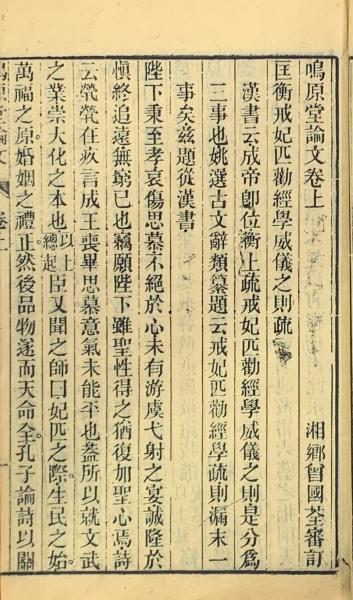 鳴原堂論文卷上
湘鄉曾國荃審訂
匡衡戒妃匹勸經學威儀之則疏
漢書云成帝卽位衡上疏戒妃匹勸經學威儀之則是分爲
三事也姚選古文辭類纂題云戒妃匹勸經學疏則漏末一
事矣茲題從漢書
陛下秉至孝哀傷思慕不絕於心未有游虞弋射之宴誠隆於
愼終追遠無窮已也竊願陛下雖聖性得之猶復加聖心焉詩
云煢煢在疚言成王喪畢思慕意氣未能平也蓋所以就文武
之業崇大化之本也以上總起臣又聞之師曰妃匹之際生民之始
萬福之原婚姻之禮正然後品物遂而天命全孔子論詩以關